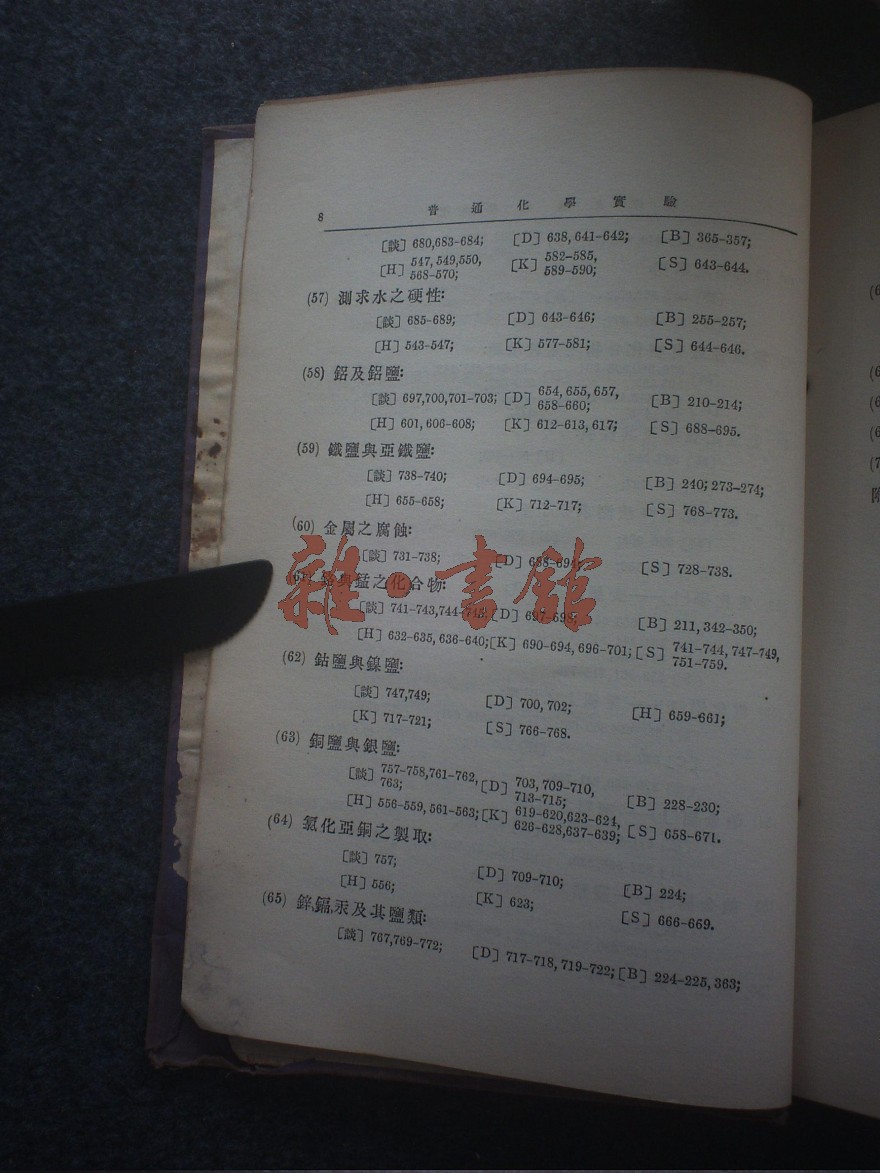 8 普通化學實驗
[談] 680,683-684; [D] 638, 641-642; [B] 365-357;
[H] 547, 549,550, 568-570; [K] 582-585, 589-590; [S] 643-644.
(57) 測求水之硬性:
[談] 685-689; [D] 643-646; [B] 255-257;
[H] 543-547; [K] 577-581; [S] 644-646.
(58) 鋁及鋁鹽:
[談] 697,700,701-703; [D] 654, 655, 657, 658-660; [B] 210-214;
[H] 601, 606-608; [K] 612-613, 617; [S] 688-695.
(59) 鐵鹽與亞鐵鹽:
[談] 738-740; [D] 694-695; [B] 240; 273-274;
[H] 655-658; [K] 712-717; [S] 768-773.
(60) 金屬之腐蝕:
[談] 731-738; [D] 688-694; [S] 728-738.
(61) 與錳之化合物:
[談] 741-743,744-745; [D] 697-698; [B] 211, 342-350;
[H] 632-635, 636-640; [K] 690-694, 696-701; [S] 741-744, 747-749, 751-759.
(62) 鈷鹽與鎳鹽:
[談] 747,749; [D] 700, 702; [H] 659-661;
[K] 717-721; [S] 766-768.
(63) 銅鹽與銀鹽:
[談] 757-758,761-762, 763; [D] 703, 709-710, 713-715; [B] 228-230;
[H] 556-559, 561-563; [K] 619-620,623-624, 626-628,637-639; [S] 658-671.
(64) 氯化亞銅之製取:
[談] 757; [D] 709-710; [B] 224;
[H] 556; [K] 623; [S] 666-669.
(65) 鋅,鎘,汞及其鹽類:
[談] 767,769-772; [D] 717-718, 719-722; [B] 224-225, 363;
雜·書館
(6
(6
(6
(6
(7
附